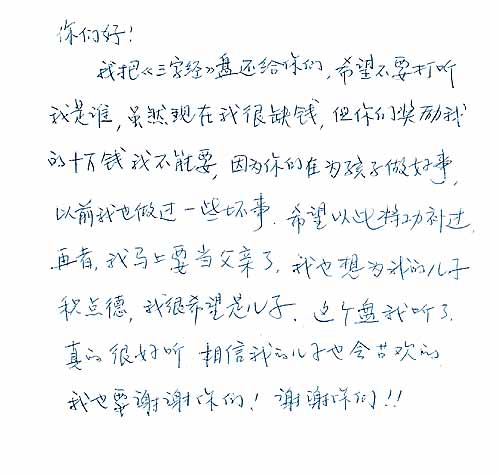 你们好!
我把《三字经》盘还给你们,希望不要打听
我是谁,虽然现在我很缺钱,但你们奖励我
的十万钱我不能要,因为你们在为孩子做好事,
以前我也做过一些坏事.希望以此将功补过,
再者,我马上要当父亲了.我也想为我的儿子
积点德,我很希望是儿子.这个盘我听了.
真的很好听 相信我的儿子也会喜欢的
我也要谢谢你们!谢谢你们!!